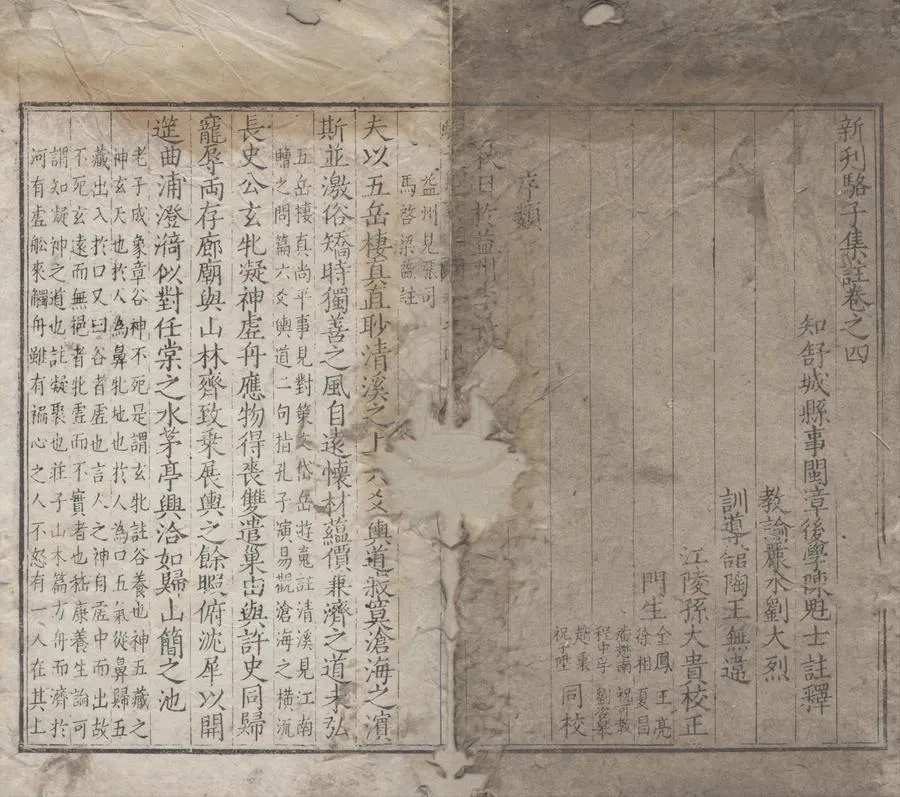 新刊駱子集註卷之四
知舒城縣事閩章後學陳魁士註釋
教諭麗水劉大烈
訓導舘陶王無違
江陵孫大貴校正
門生
金鳳 王亮
徐相 夏昌
潘懋南 祝可教
程中孚 劉
趙秉
祝子
同校
序類
秋日於益州李
益州見張司
馬啓梁 註
夫以五岳棲真直聆清溪之上六爻輿道寂寞滄海之濵
斯並激俗矯時獨善之風自遠懷材蘊價兼濟之道未弘
五岳棲真尚平事見對策文岱岳遊魂註清溪見江南
贈之問篇六爻輿道二句指孔子演易觀滄海之橫流
長史公玄牝凝神虛舟應物得喪雙遣巢由與許史同歸
寵辱両存廊廟與山林齊致乗展輿之餘照俯沈犀以開
筵曲浦澄漪似對任棠之水茅亭興洽如歸山簡之池
老子成象章谷神不死是謂玄牝註谷養也神五藏之
神玄天也於人為鼻牝地也於人為口五氣從鼻歸五
藏出入於口又曰谷者虛也言人之神自虛中而出故
不死玄遠而無挹者牝虛而不實者也嵇康養生論可
謂知凝神之道也註凝聚也莊子山木篇方舟而濟於
河有虛舩來觸舟雖有褊心之人不怒有一人在其上